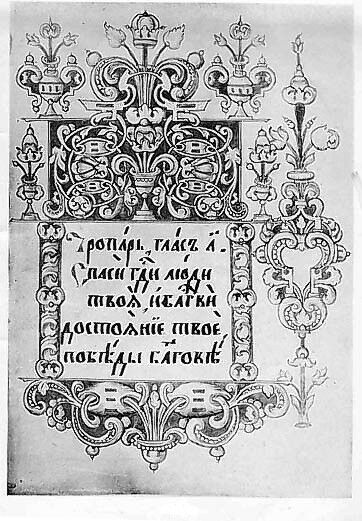 Тропарь, гласъ а҃.
Спаси гд҃и люди
твоя, и бл҃гви
достояніе твое,
побѣды бл҃говѣ